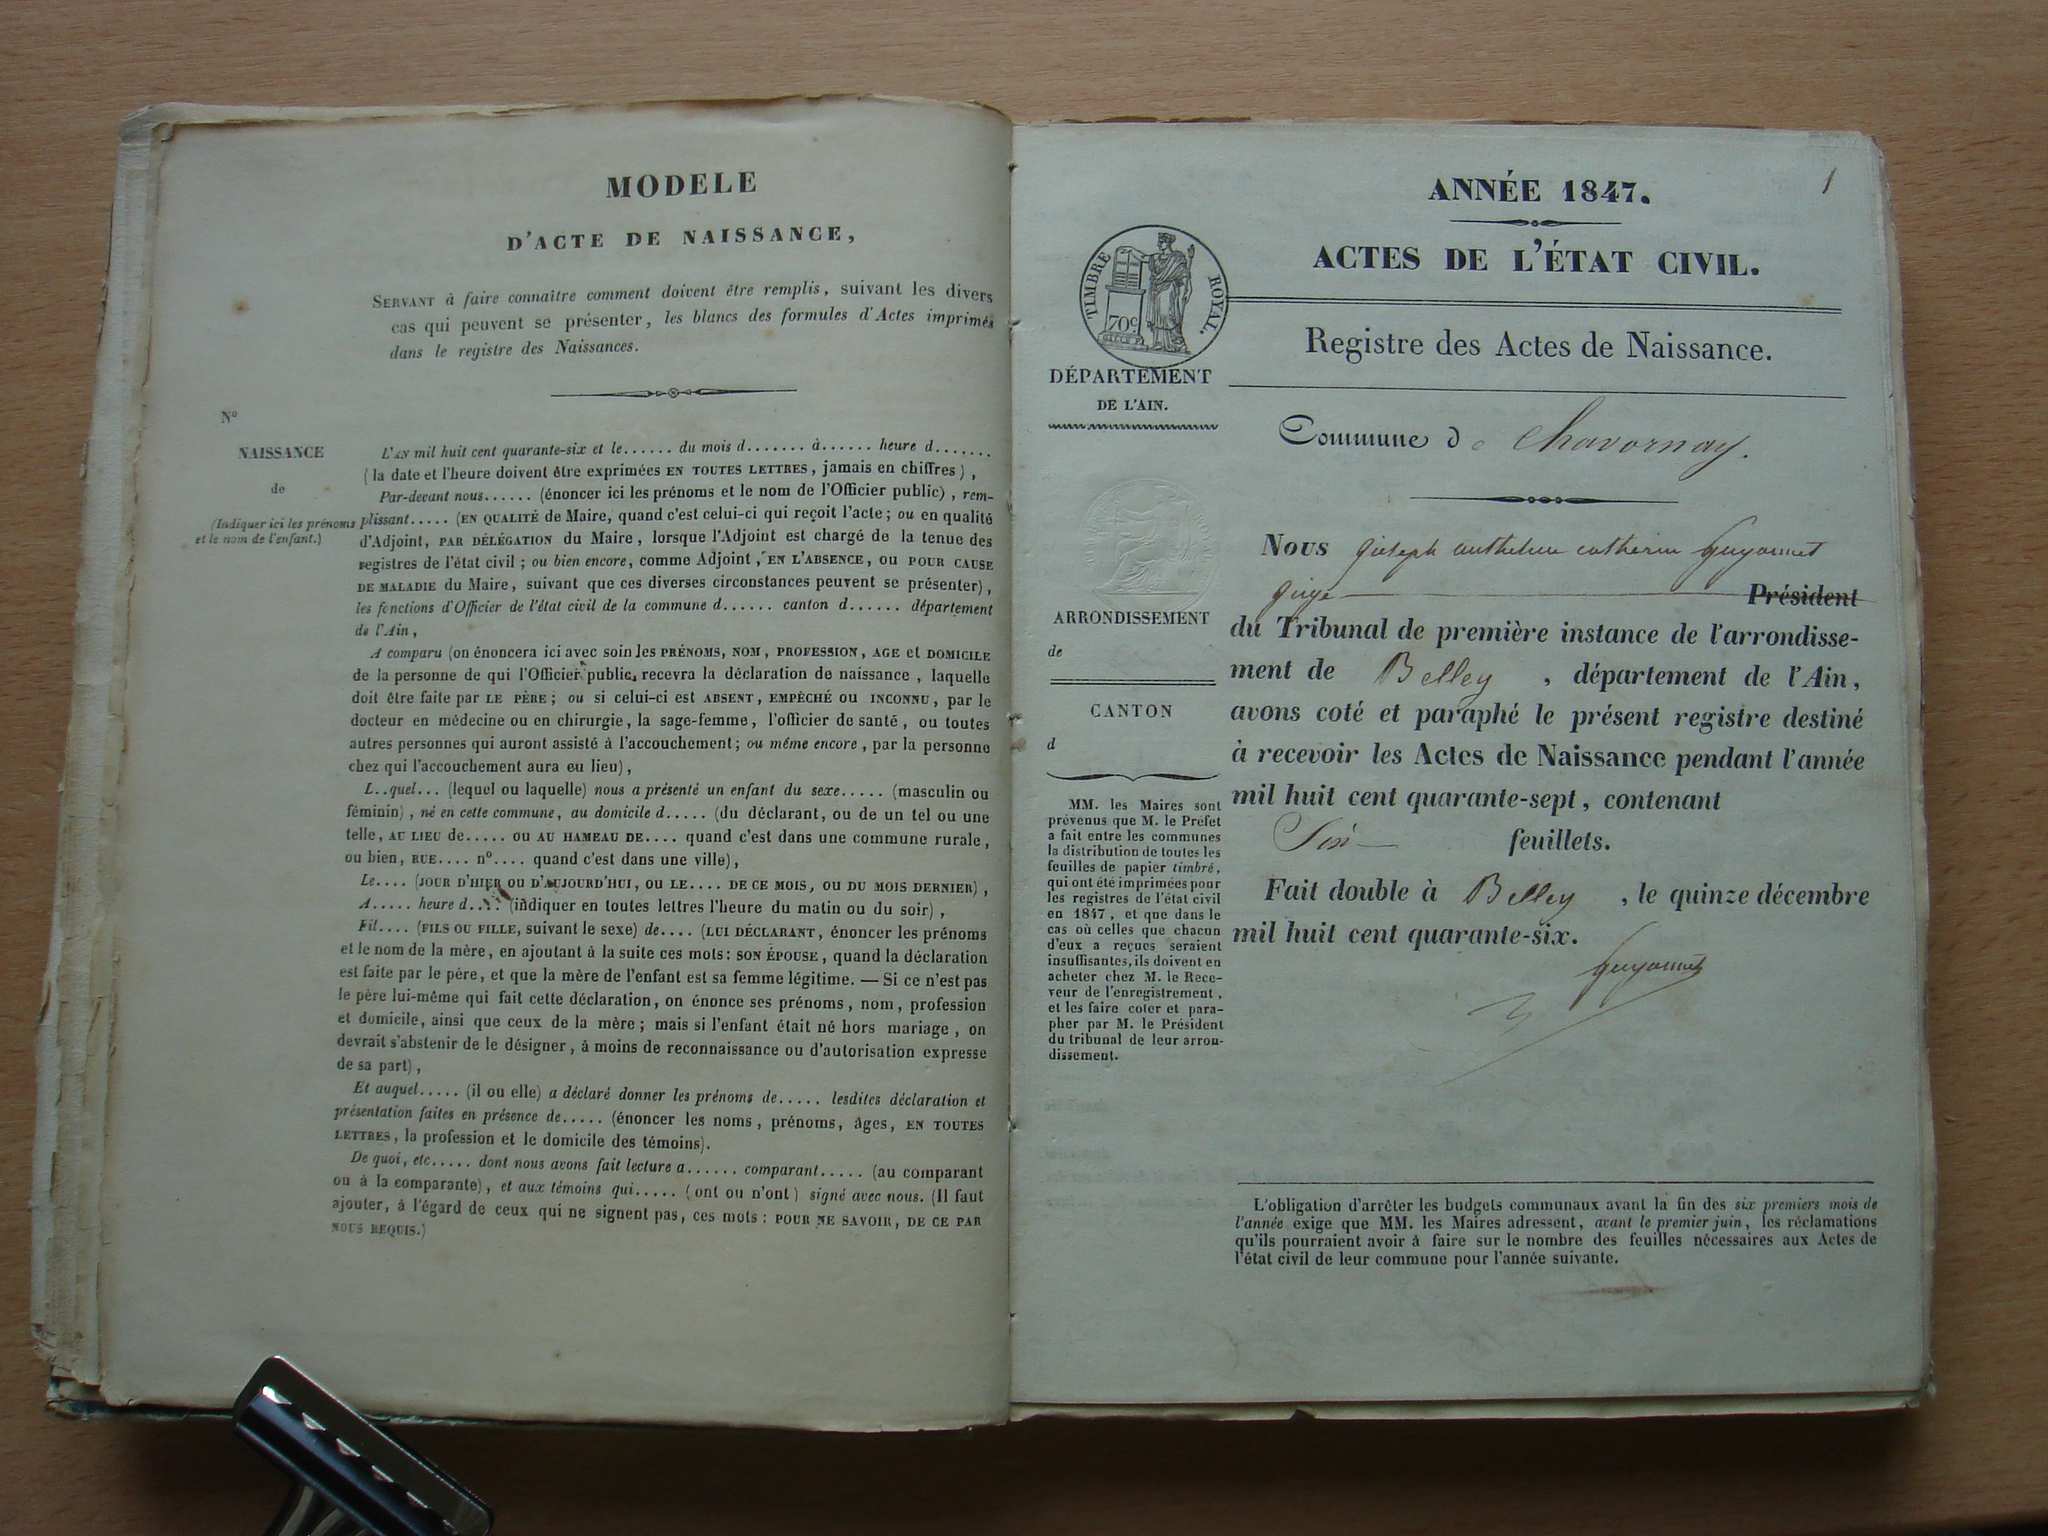 MODELE
D'ACTE DE NAISSANCE,
SERVANT à faire connaître comment doivent être remplis, suivant les divers
cas qui peuvent se présenter, les blancs des formules d'Actes imprimés
dans le registre des Naissances.
N°
NAISSANCE
de
(Indiquer ici les prénoms
et le nom de l'enfant.)
L'AN mil huit cent quarante-six et le...... du mois d....... à...... heure d.......
(la date et l'heure doivent être exprimées EN TOUTES LETTRES, jamais en chiffres),
Par-devant nous...... (énoncer ici les prénoms et le nom de l'Officier public), rem-
plissant..... (EN QUALITÉ de Maire, quand c'est celui-ci qui reçoit l'acte; ou en qualité
d'Adjoint, PAR DÉLÉGATION du Maire, lorsque l'Adjoint est chargé de la tenue des
registres de l'état civil; ou bien encore, comme Adjoint, EN L'ABSENCE, OU POUR CAUSE
DE MALADIE du Maire, suivant que ces diverses circonstances peuvent se présenter),
les fonctions d'Officier de l'état civil de la commune d...... canton d...... département
de l'Ain,
A comparu (on énoncera ici avec soin les PRÉNOMS, NOM, PROFESSION, AGE et DOMICILE
de la personne de qui l'Officier public recevra la déclaration de naissance, laquelle
doit être faite par LE PÈRE; ou si celui-ci est ABSENT, EMPÊCHÉ ou INCONNU, par le
docteur en médecine ou en chirurgie, la sage-femme, l'officier de santé, ou toutes
autres personnes qui auront assisté à l'accouchement; ou même encore, par la personne
chez qui l'accouchement aura eu lieu),
L..quel... (lequel ou laquelle) nous a présenté un enfant du sexe..... (masculin ou
féminin), né en cette commune, au domicile d..... (du déclarant, ou de un tel ou une
telle, AU LIEU de..... ou AU HAMEAU DE.... quand c'est dans une commune rurale,
ou bien, RUE.... n°.... quand c'est dans une ville),
Le.... (JOUR D'HIER OU D'AUJOURD'HUI, OU LE.... DE CE MOIS, OU DU MOIS DERNIER),
A..... heure d.... (indiquer en toutes lettres l'heure du matin ou du soir),
Fil.... (FILS OU FILLE, suivant le sexe) de.... (LUI DÉCLARANT, énoncer les prénoms
et le nom de la mère, en ajoutant à la suite ces mots: SON ÉPOUSE, quand la déclaration
est faite par le père, et que la mère de l'enfant est sa femme légitime. — Si ce n'est pas
le père lui-même qui fait cette déclaration, on énonce ses prénoms, nom, profession
et domicile, ainsi que ceux de la mère; mais si l'enfant était né hors mariage, on
devrait s'abstenir de le désigner, à moins de reconnaissance ou d'autorisation expresse
de sa part),
Et auquel..... (il ou elle) a déclaré donner les prénoms de..... lesdites déclaration et
présentation faites en présence de..... (énoncer les noms, prénoms, âges, EN TOUTES
LETTRES, la profession et le domicile des témoins).
De quoi, etc..... dont nous avons fait lecture a...... comparant..... (au comparant
ou à la comparante), et aux témoins qui..... (ont ou n'ont) signé avec nous. (Il faut
ajouter, à l'égard de ceux qui ne signent pas, ces mots: POUR NE SAVOIR, DE CE PAR
NOUS REQUIS.)
1
ANNÉE 1847.
ACTES DE L'ÉTAT CIVIL.
Registre des Actes de Naissance.
TIMBRE ROYAL.
70c
DÉPARTEMENT
DE L'AIN.
ARRONDISSEMENT
de
CANTON
d
MM. les Maires sont
prévenus que M. le Préfet
a fait entre les communes
la distribution de toutes les
feuilles de papier timbré,
qui ont été imprimées pour
les registres de l'état civil
en 1847, et que dans le
cas où celles que chacun
d'eux a reçues seraient
insuffisantes, ils doivent en
acheter chez M. le Rece-
veur de l'enregistrement,
et les faire coter et para-
pher par M. le Président
du tribunal de leur arron-
dissement.
Commune de Chavornay.
Nous joseph anthelme catherin Guyonnet
juge Président
du Tribunal de première instance de l'arrondisse-
ment de Belley, département de l'Ain,
avons coté et paraphé le présent registre destiné
à recevoir les Actes de Naissance pendant l'année
mil huit cent quarante-sept, contenant
Six feuillets.
Fait double à Belley, le quinze décembre
mil huit cent quarante-six.
Guyonnet
L'obligation d'arrêter les budgets communaux avant la fin des six premiers mois de
l'année exige que MM. les Maires adressent, avant le premier juin, les réclamations
qu'ils pourraient avoir à faire sur le nombre des feuilles nécessaires aux Actes de
l'état civil de leur commune pour l'année suivante.